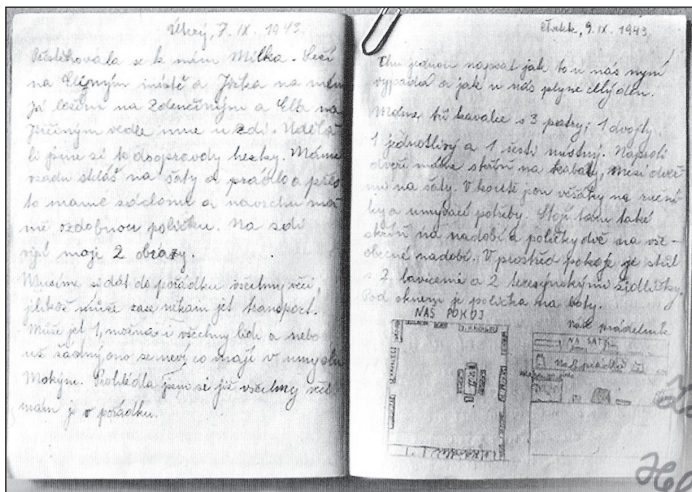 Úterý, 7. IX. 1943.
Přistěhovala se k nám Milka. Leží
na místě a Jiřka na mém
já ležím na Zdenčiným a Ela na
Jiřčiným vedle mne u zdi. Udělá-
li jsme si to doopravdy hezky. Máme
vzadu sklad na šaty a prádlo a přes
to máme záclonu a navrchu má-
me ozdobnou poličku. Na zdi
visí moje 2 obrazy.
Musíme si dát do pořádku všechny věci,
jelikož může zase někam jet transport.
Může jet 1, možná i všechny lidi a nebo
už žádný, ono se neví, co mají v úmyslu
Prohlédla jsem si již všechny věci
mám je v pořádku.
Čtvrtek, 9. IX. 1943.
Chci jednou napsat jak to u nás nyní
vypadá a jak u nás plyne celý den.
Máme tři kavalce s 3 patry; 1 dvojitý,
1 jednotlivý a 1 šesti místný. Naproti
dveří máme skříň na kabáty, mezi dveř-
mi na šaty. V koutě jsou věšáky na ruční-
ky a umývací potřeby. Stojí tam také
skříň na nádobí a poličky dvě na vše-
obecné nádobí. V prostřed pokoje je stůl
s 2 lavicemi a 2 terezínskými židličkami.
Pod oknem je polička na boty.
NÁŠ POKOJ
náš prádelník
NA ŠATY